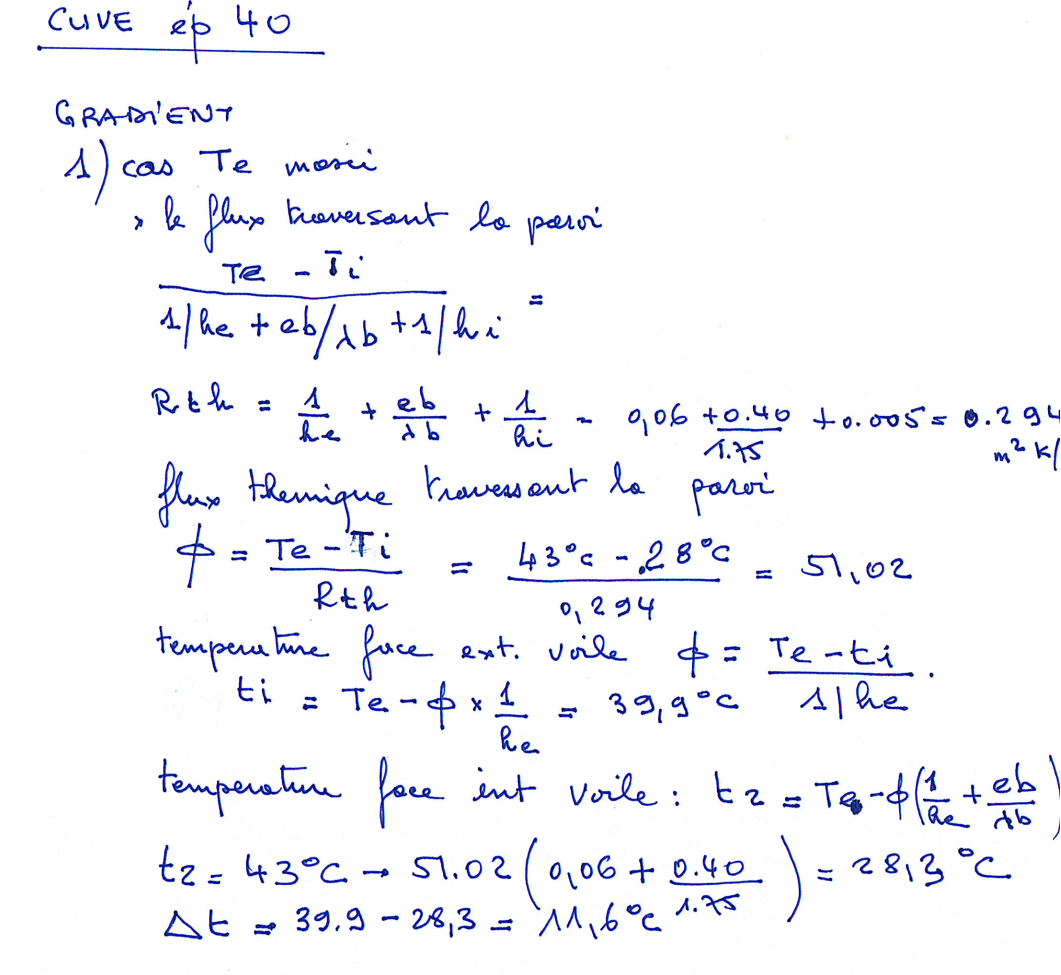 CUVE ép 40
GRADIENT
1) cas Te maxi
> le flux traversant la paroi
Te - Ti / (1/he + eb/λb + 1/hi) =
Rth = 1/he + eb/λb + 1/hi = 0,06 + 0.40/1.75 + 0.005 = 0.294
m² K/
flux thermique traversant la paroi
ϕ = Te - Ti / Rth = 43°c - 28°c / 0,294 = 51,02
temperature face ext. voile ϕ = Te - ti / 1/he .
ti = Te - ϕ × 1/he = 39,9°c
temperature face int voile : t2 = Te - ϕ(1/he + eb/λb)
t2 = 43°C - 51.02 (0,06 + 0.40/1.75) = 28,3 °C
Δt = 39.9 - 28,3 = 11,6°c